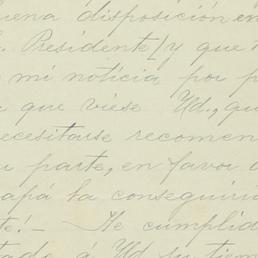 uena disposición en
. Presidente/y que
mi noticia por p
a que viese Ud., qu
ecesitarse recomen
u parte, en favor d
apá la conseguiría
te! - He cumplid
tado á Ud su tiem